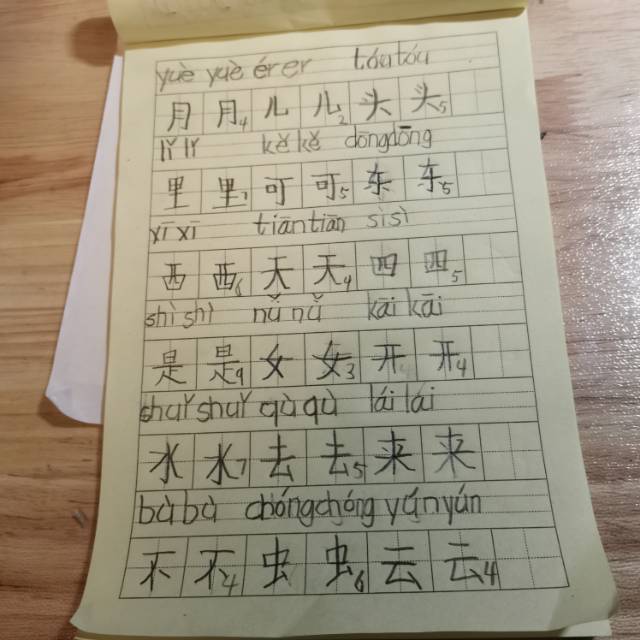 yuè yuè ér er tóu tóu
月 月4 儿 儿2 头 头5
lǐ lǐ kě kě dōng dōng
里 里7 可 可5 东 东5
xī xī tiān tiān sì sì
西 西6 天 天4 四 四5
shì shì nǚ nǚ kāi kāi
是 是9 女 女3 开 开4
shuǐ shuǐ qù qù lái lái
水 水 去 去5 来 来
bù bù chóng chóng yún yún
不 不4 虫 虫6 云 云4